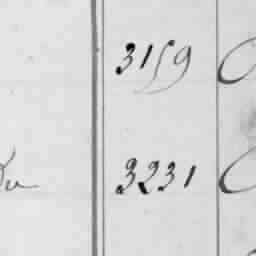 3159
Du 3231